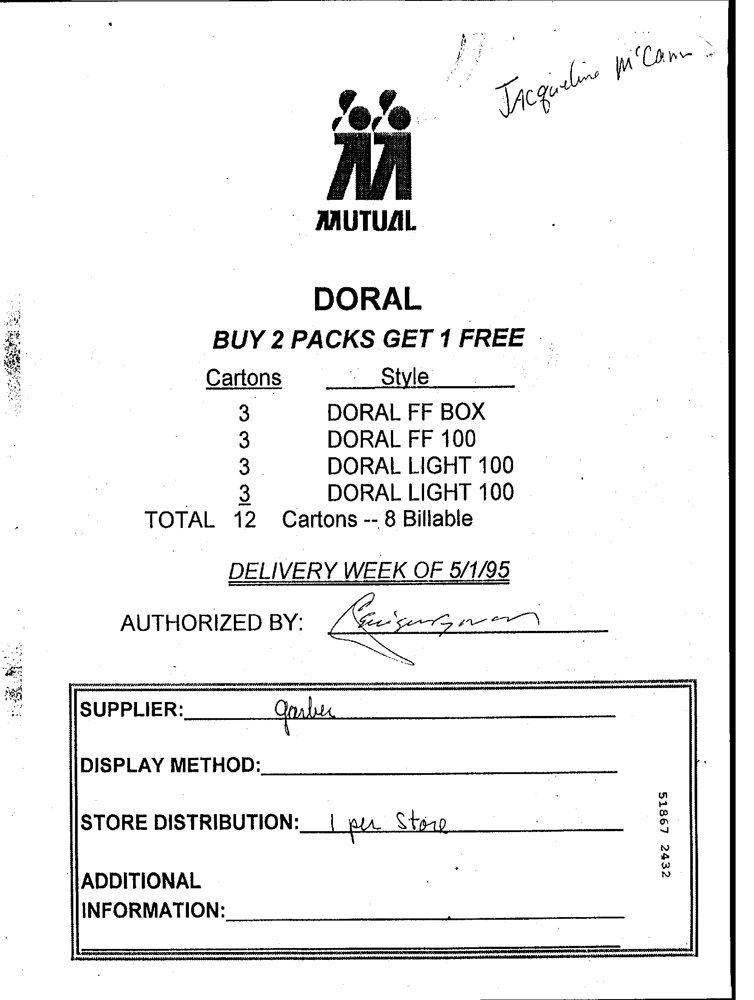 Jacqueline McCann
MUTUAL
DORAL
BUY 2 PACKS GET 1 FREE
Cartons Style
3 DORAL FF BOX
3 DORAL FF 100
3 DORAL LIGHT 100
3 DORAL LIGHT 100
TOTAL 12 Cartons -- 8 Billable
DELIVERY WEEK OF 5/1/95
AUTHORIZED BY:
SUPPLIER: garber
DISPLAY METHOD:
STORE DISTRIBUTION: 1 per Store
ADDITIONAL
INFORMATION:
51867 2432